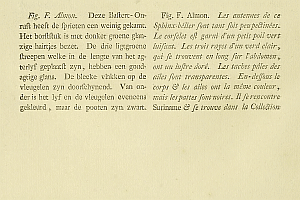 Fig. F. Almon. Deze Bastert-On-
rust heeft de sprieten een weinig gekamt.
Het borststuk is met donker groene glan-
zige hairtjes bezet. De drie ligtgroene
streepen welke in de lengte van het ag-
terlyf geplaatst zyn, hebben een goud-
agtige glans. De bleeke vlakken op de
vleugelen zyn doorschynend. Van on-
der is het lyf en de vleugelen eveneens
gekleurd, maar de pooten zyn zwart.
Fig. F. Almon. Les antennes de ce
Sphinx-bélier sont tant soit peu pectinées.
Le corselet est garni d'un petit poil vert
luisant. Les trois rayes d'un verd clair,
qui se trouvent en long sur l'abdomen,
ont un lustre doré. Les taches pâles des
ailes sont transparentes. En-dessous le
corps & les ailes ont la même couleur,
mais les pattes sont noires. Il se rencontre
Suriname & se trouve dans la Collection